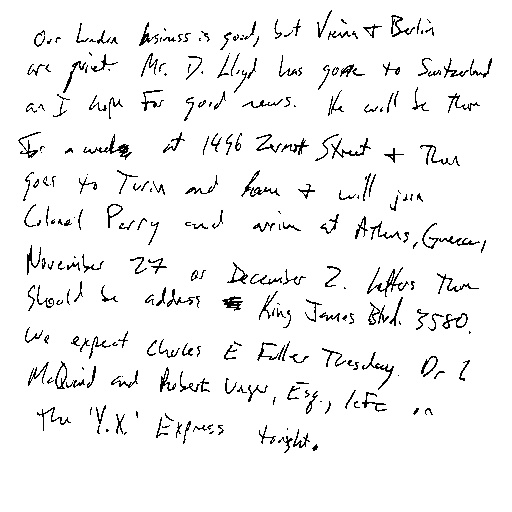 Our London business is good, but Vienna + Berlin
are quiet. Mr. D. Lloyd has gone to Switzerland
an I hope For good news. He will be there
For a week at 1496 Zermott Street + Then
goes to Turin and Rome + will join
Colonel Perry and arrive at Athens, Greece,
November 27 or December 2. Letters there
Should be address King James Blvd. 3580.
We expect Charles E Fuller Tuesday. Dr L
McQuaid and Robert Unger, Esq., left on
the 'Y.X.' Express tonight.